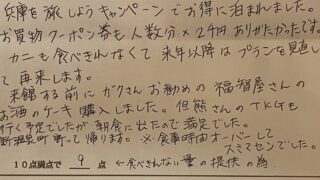 兵庫を旅しようキャンペーンでお得に泊まれました。
お買物クーポン券も人数分×2千円ありがたかったです。
カニも食べきれなくて来年以降はプランを見直し
て再来します。
来館する前にガクさんお勧めの福智屋さんの
お酒のケーキ購入しました。但熊さんのTKGも
行く予定でしたが朝食に出たので満足でした。
新温泉町寄って帰ります。※食事時間オーバーして
スミマセンでした。
10点満点で 9 点 ←食べきれない量の提供の為